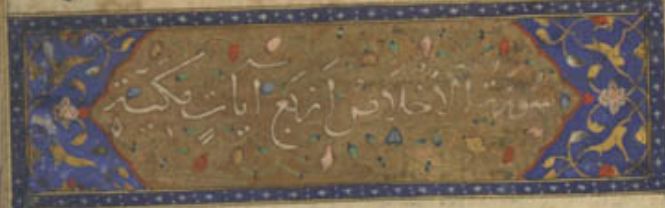 سورة الاخلاص اربع آيات مكية